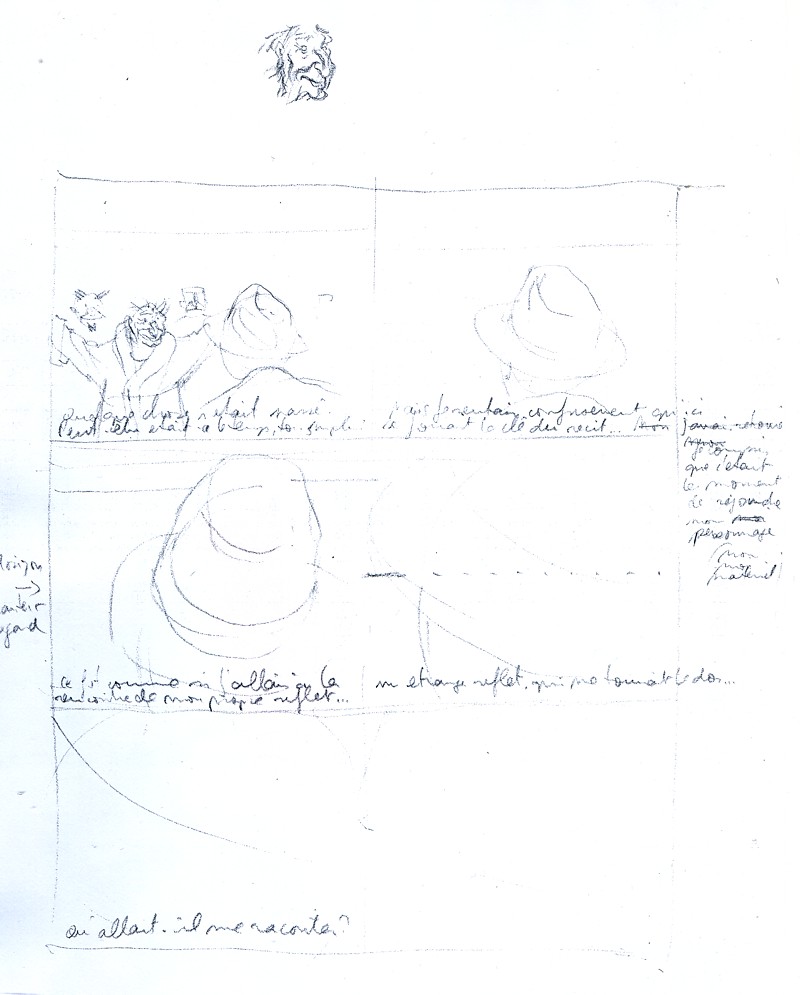 quelque chose s'était passé.
Peut-être était-ce bien plus simple :
je pressentais confusément qu'ici
se jouait la clé du récit..
j'avais retrouvé
je compris
que c'était
le moment
de rejoindre
mon
personnage
mon
matériel
horizon
regard
ce fut comme si j'allais à la
rencontre de mon propre reflet...
un étrange reflet, qui me tournait le dos...
qu'allait-il me raconter ?